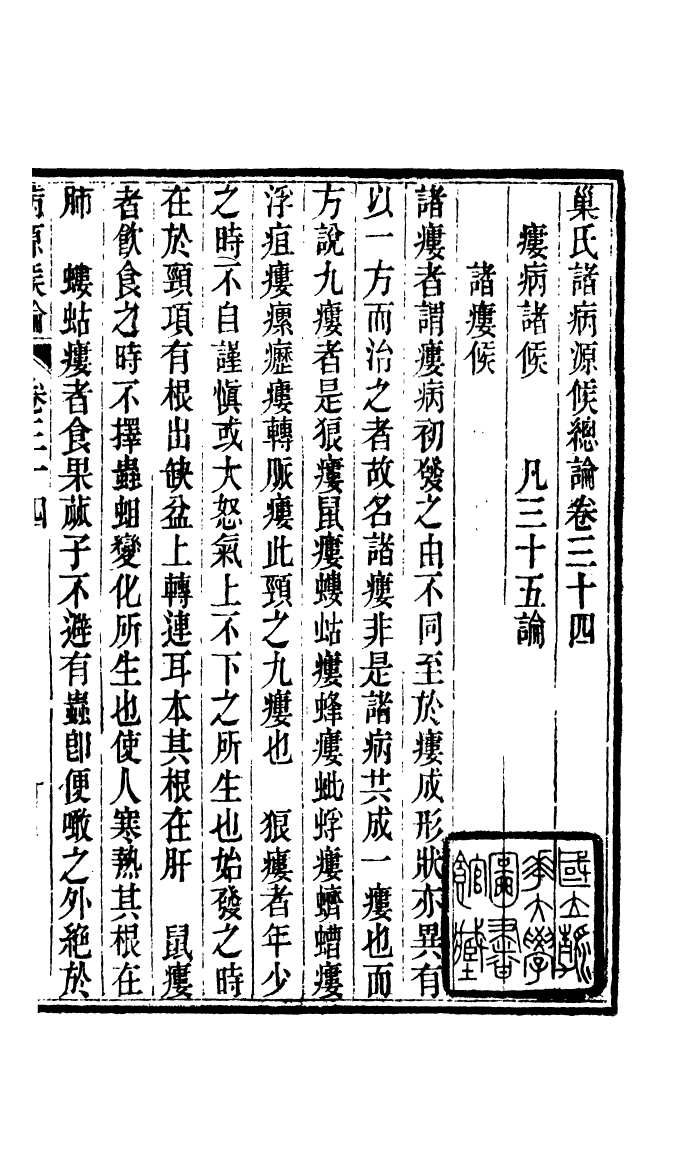 巢氏諸病源候總論卷三十四
瘻病諸候　　凡三十五論
諸瘻候
諸瘻者謂瘻病初發之由不同至於瘻成形狀亦異有
以一方而治之者故名諸瘻非是諸病共成一瘻也而
方說九瘻者是狼瘻鼠瘻螻蛄瘻蜂瘻蚍蜉瘻蠐螬瘻
浮疽瘻瘰癧瘻轉脈瘻此頸之九瘻也　狼瘻者年少
之時不自謹慎或大怒氣上不下之所生也始發之時
在於頸項有根出缺盆上轉連耳本其根在肝　鼠瘻
者飲食之時不擇蟲蛆變化所生也使人寒熱其根在
肺　螻蛄瘻者食果蓏子不避有蟲卽便噉之外絕於
病源候論　卷三十四
國立
大學
圖書
館藏